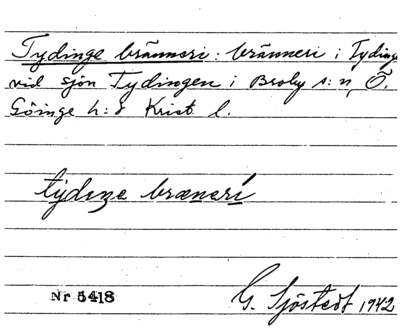 Tydinge bränneri: bränneri i Tydinge
vid sjön Tydingen i Broby s:n, Ö.
Göinge h:d Krist. l.
Nr 5418
G. Sjöstedt 1942